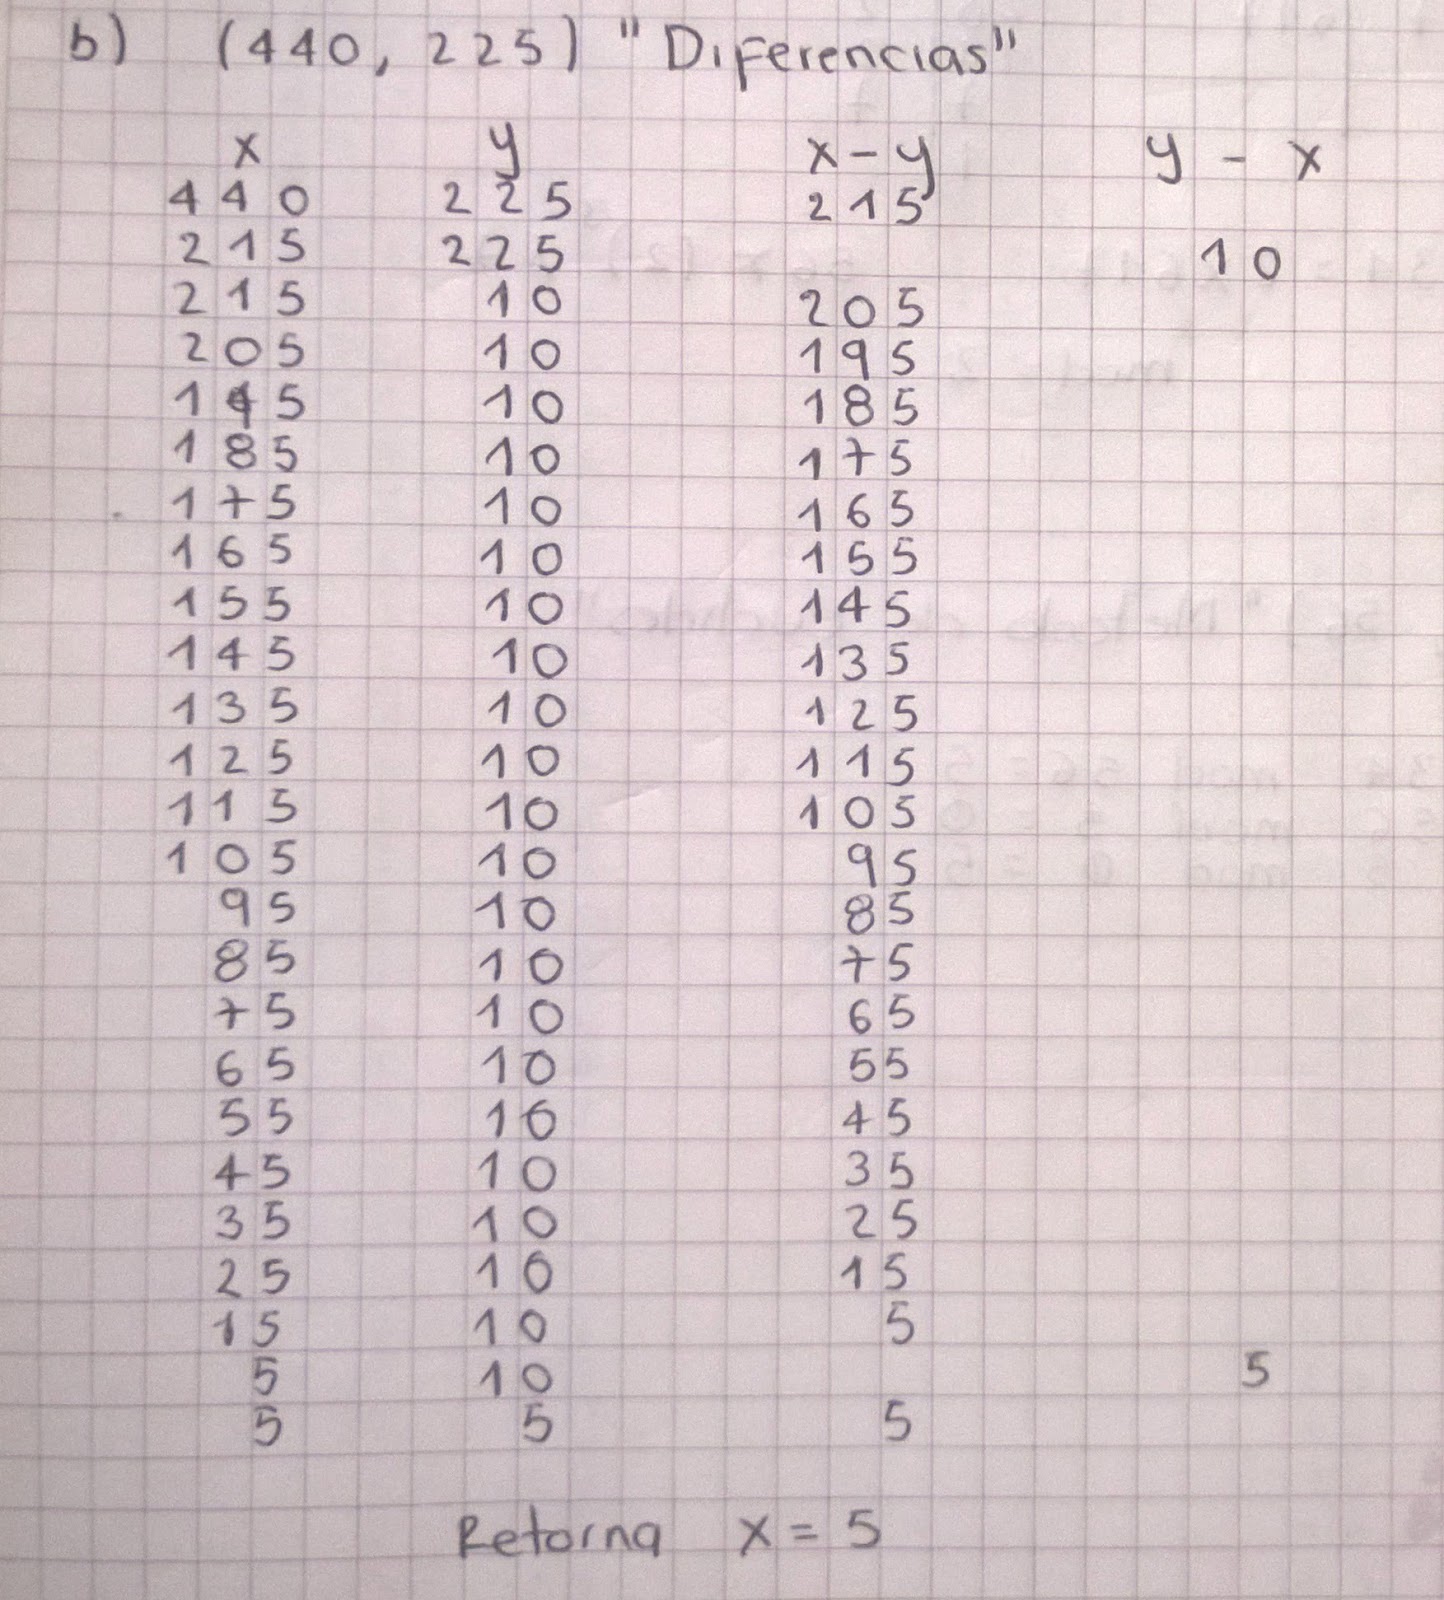 b) (440, 225) "Diferencias"
x y x-y y - x
440 225 215
215 225 10
215 10 205
205 10 195
195 10 185
185 10 175
175 10 165
165 10 155
155 10 145
145 10 135
135 10 125
125 10 115
115 10 105
105 10 95
95 10 85
85 10 75
75 10 65
65 10 55
55 10 45
45 10 35
35 10 25
25 10 15
15 10 5
5 10 5
5 5 5
Retorna x = 5